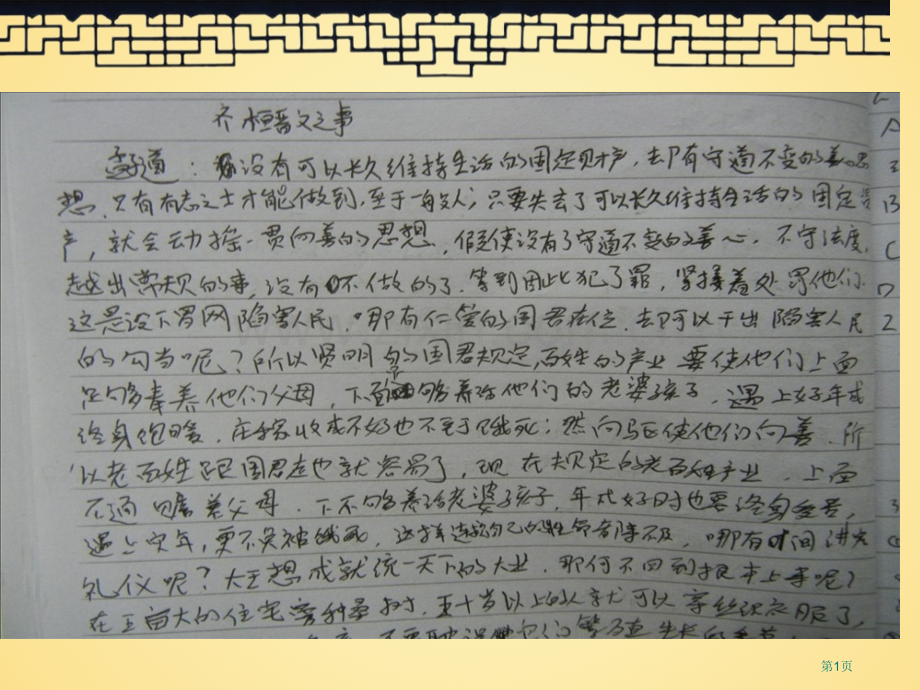 齐桓晋文之事
孟子道：没有可以长久维持生活的固定财产，却有守道不变的善思
想，只有有志之士才能做到，至于一般人，只要失去了可以长久维持生活的固定
产，就会动摇一贯向善的思想，假使没有了守道不变的善心，不守法度，
越出常规的事，没有不做的了，等到因此犯了罪，紧接着处罚他们
这是设下罗网陷害人民，哪有仁爱的国君在位，却可以干出陷害人民
的勾当呢？所以贤明的国君规定，百姓的产业要使他们上面
足够奉养他们父母，下面够养活他们的老婆孩子，遇上好年成
终身饱暖，庄稼收成不好也不至于饿死；然向驱使他们向善，所
以老百姓跟国君走也就容易了，现在规定的老百姓产业，上面
不通赡养父母，下不够养活老婆孩子，年成好时也要终身受苦，
遇上灾年，更不免被饿死，这样连救自己的性命都来不及，哪有时间讲究
礼仪呢？大王想成就统一天下的大业，那何不回到根本上来呢？
在五亩大的住宅旁种桑树，五十岁以上的人就可以穿丝织衣服了，
A
B
C
D
2
第1页